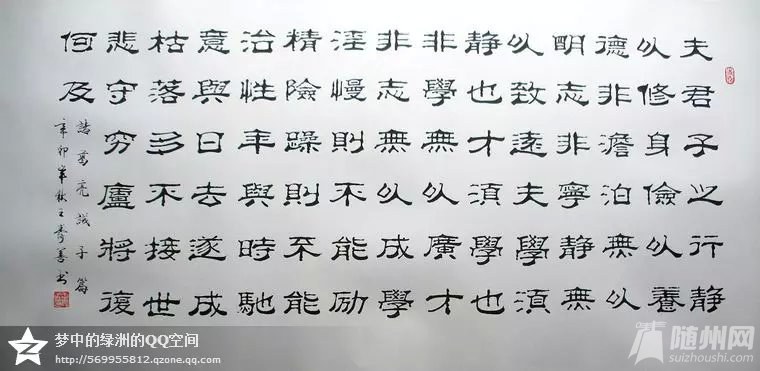 夫君子之行靜
以修身儉以養
德非澹泊無以
明志非寧靜無
以致遠夫學須
靜也才須學也
非學無以廣才
非志無以成學
淫慢則不能励
精險躁則不能
治性年與時馳
意與日去遂成
枯落多不接世
悲守穷廬將復
何及
諸葛亮誡子篇
辛卯年秋王善书
梦中的绿洲的QQ空间
http://569955812.qzone.qq.com
随州网
suizhoushi.com